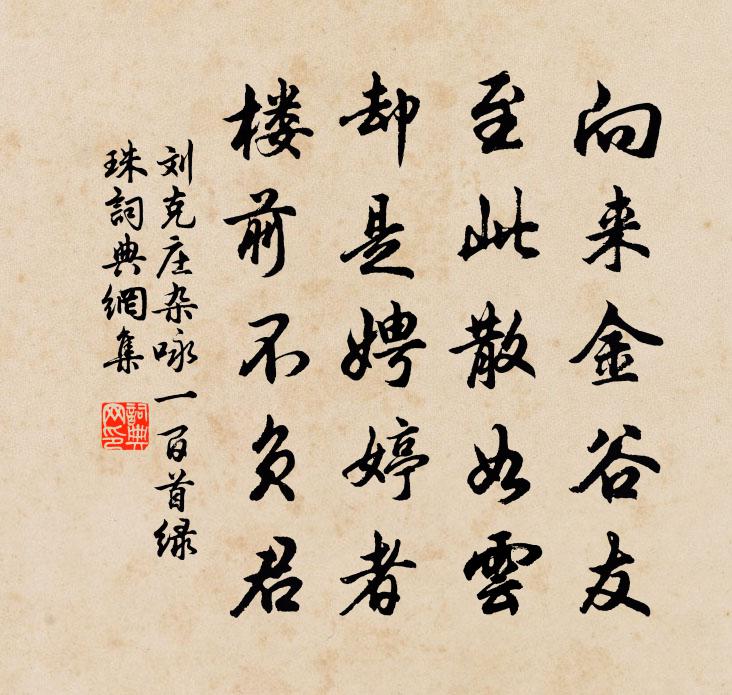 向来金谷友
至此散如雲
却是娉婷者
楼前不负君
刘克庄杂咏一百首绿
珠詞典網集
詞典
网印